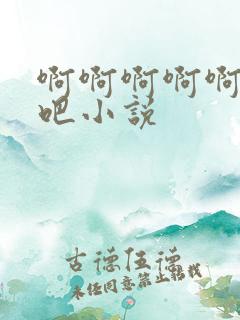 啊啊啊啊啊
吧小说
古德伍德
未经同意禁止转载